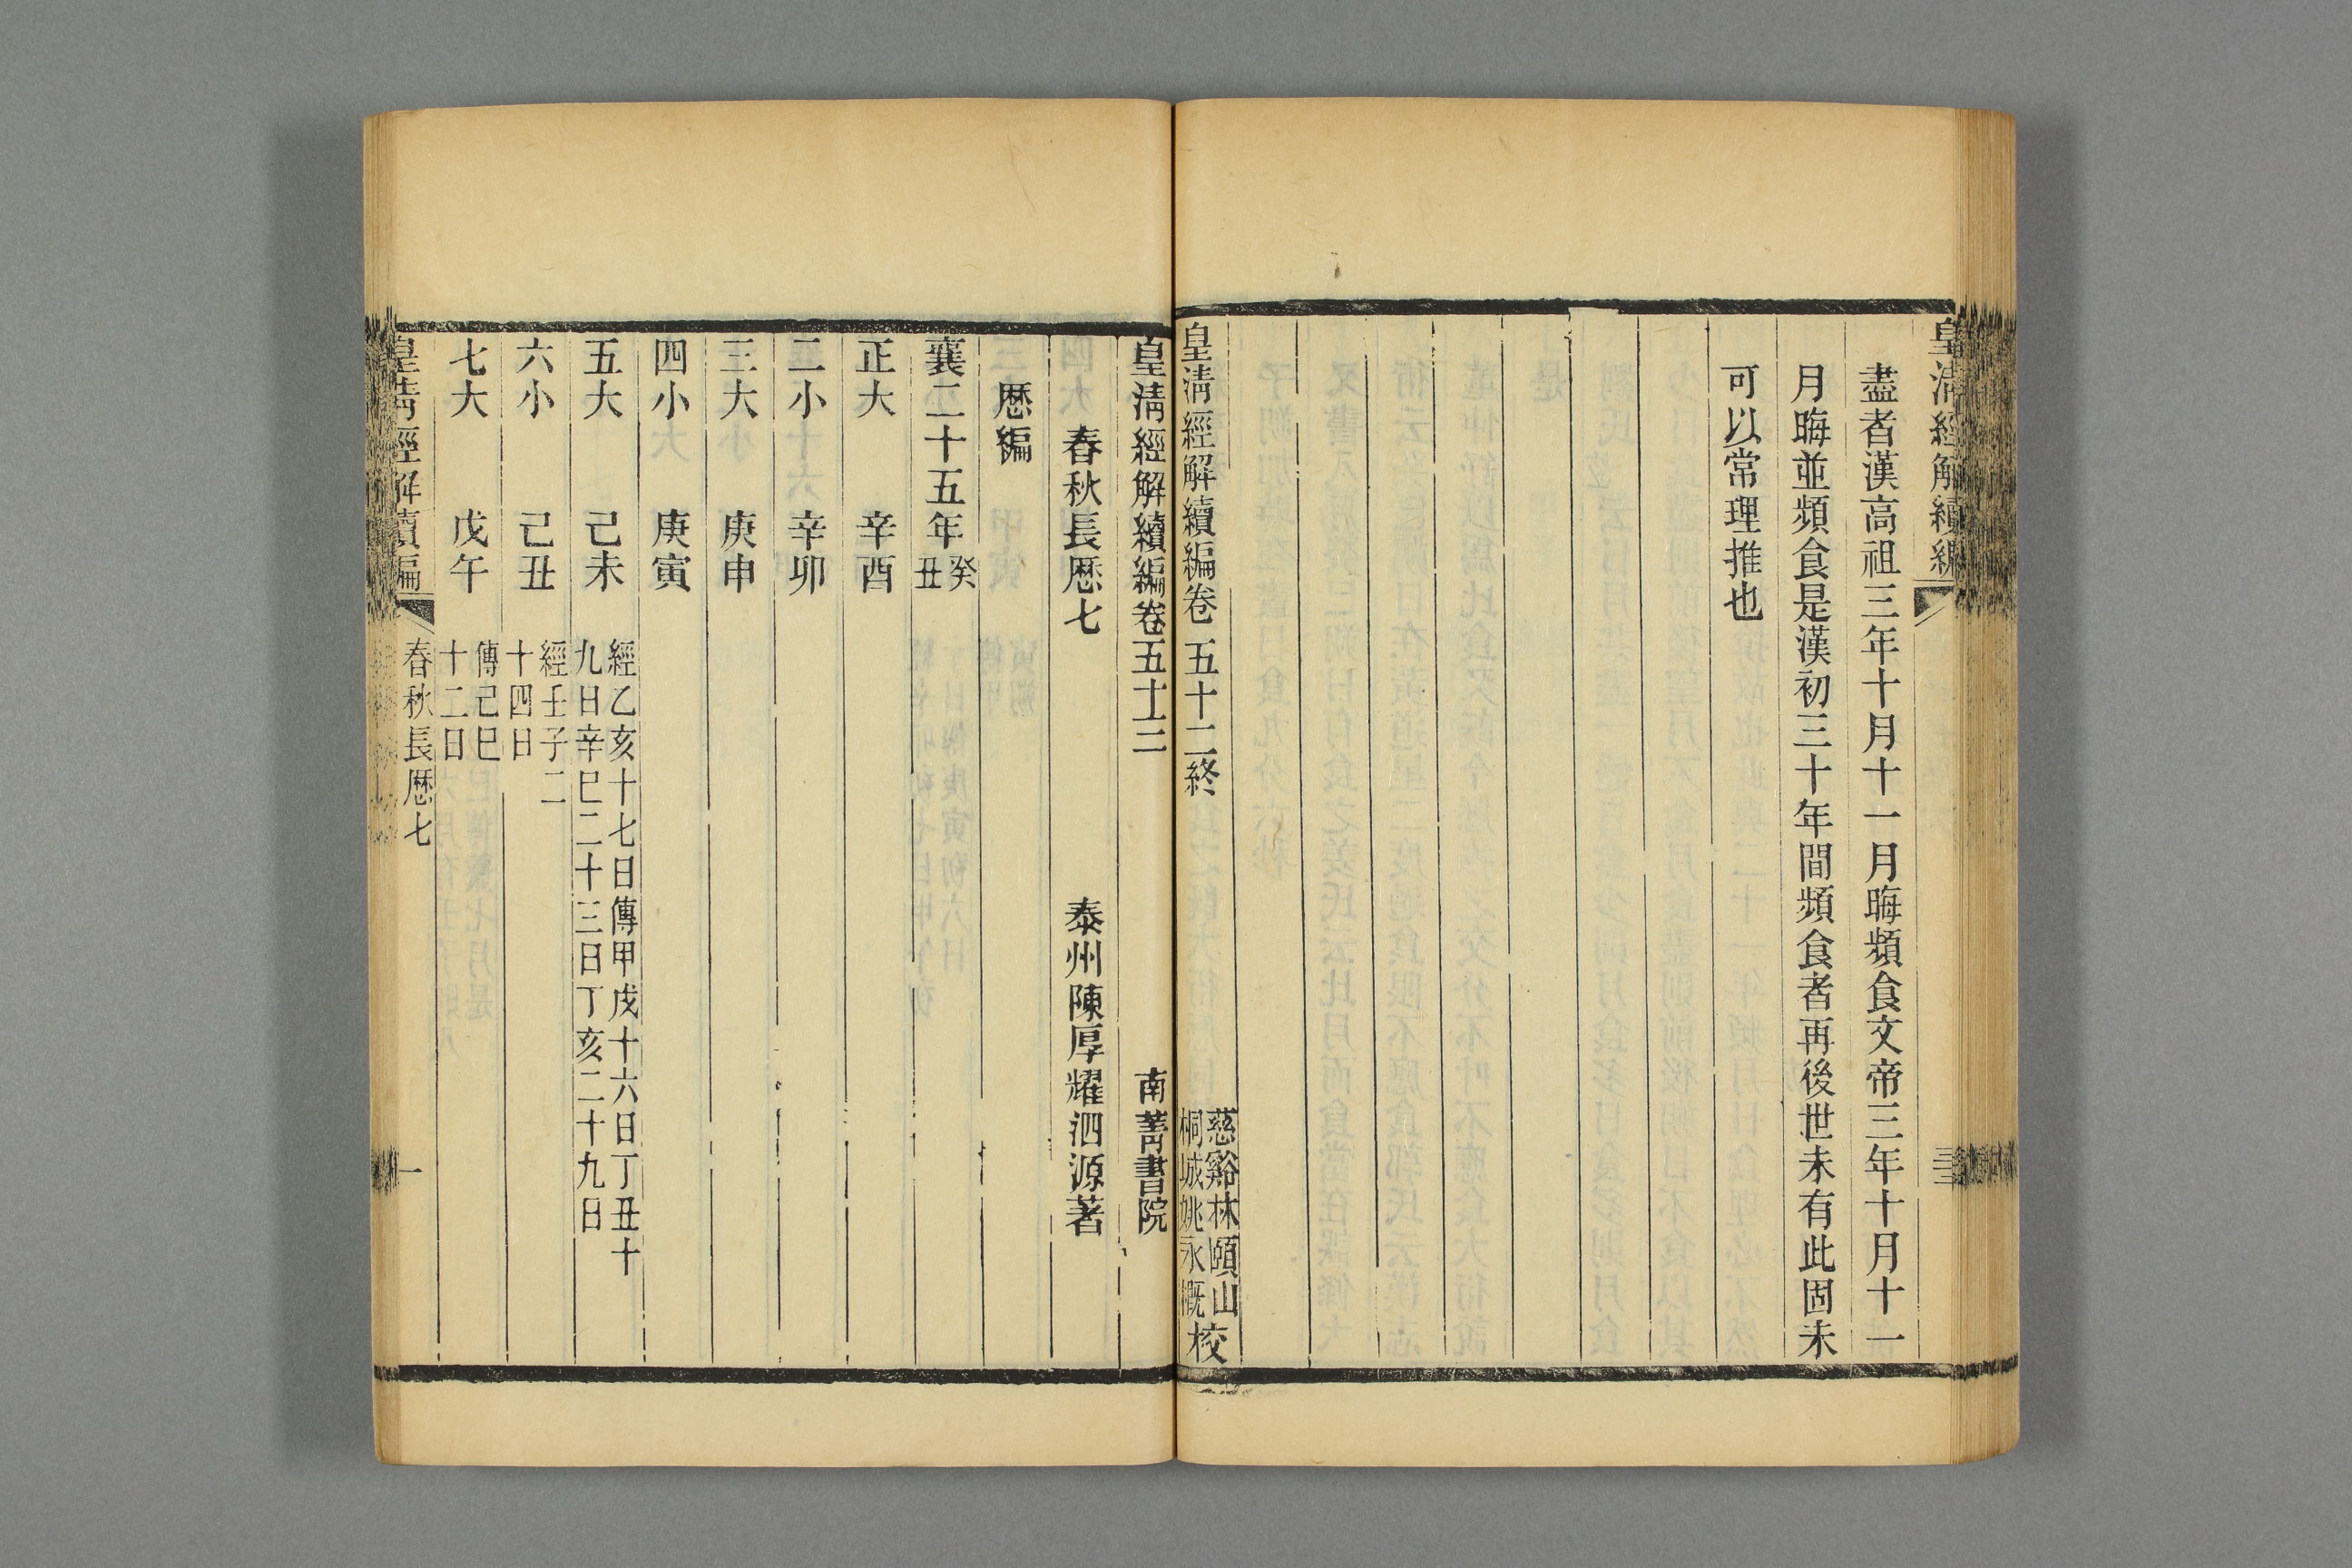 皇清經解續編
盡者漢高祖三年十月十一月晦頻食文帝三年十月十一
月晦並頻食是漢初三十年間頻食者再後世未有此固未
可以常理推也
皇清經解續編卷五十二終
慈谿林頤山
桐城姚永概
校
皇清經解續編卷五十三
南菁書院
春秋長厯七
泰州陳厚耀泗源著
厯編
襄二十五年
癸
丑
正大 辛酉
二小 辛卯
三大 庚申
四小 庚寅
五大 己未
經乙亥十七日傳甲戌十六日丁丑十
九日辛巳二十三日丁亥二十九日
六小 己丑
經壬子二
十四日
七大 戊午
傳己巳
十二日
皇清經解續編
春秋長厯七
一